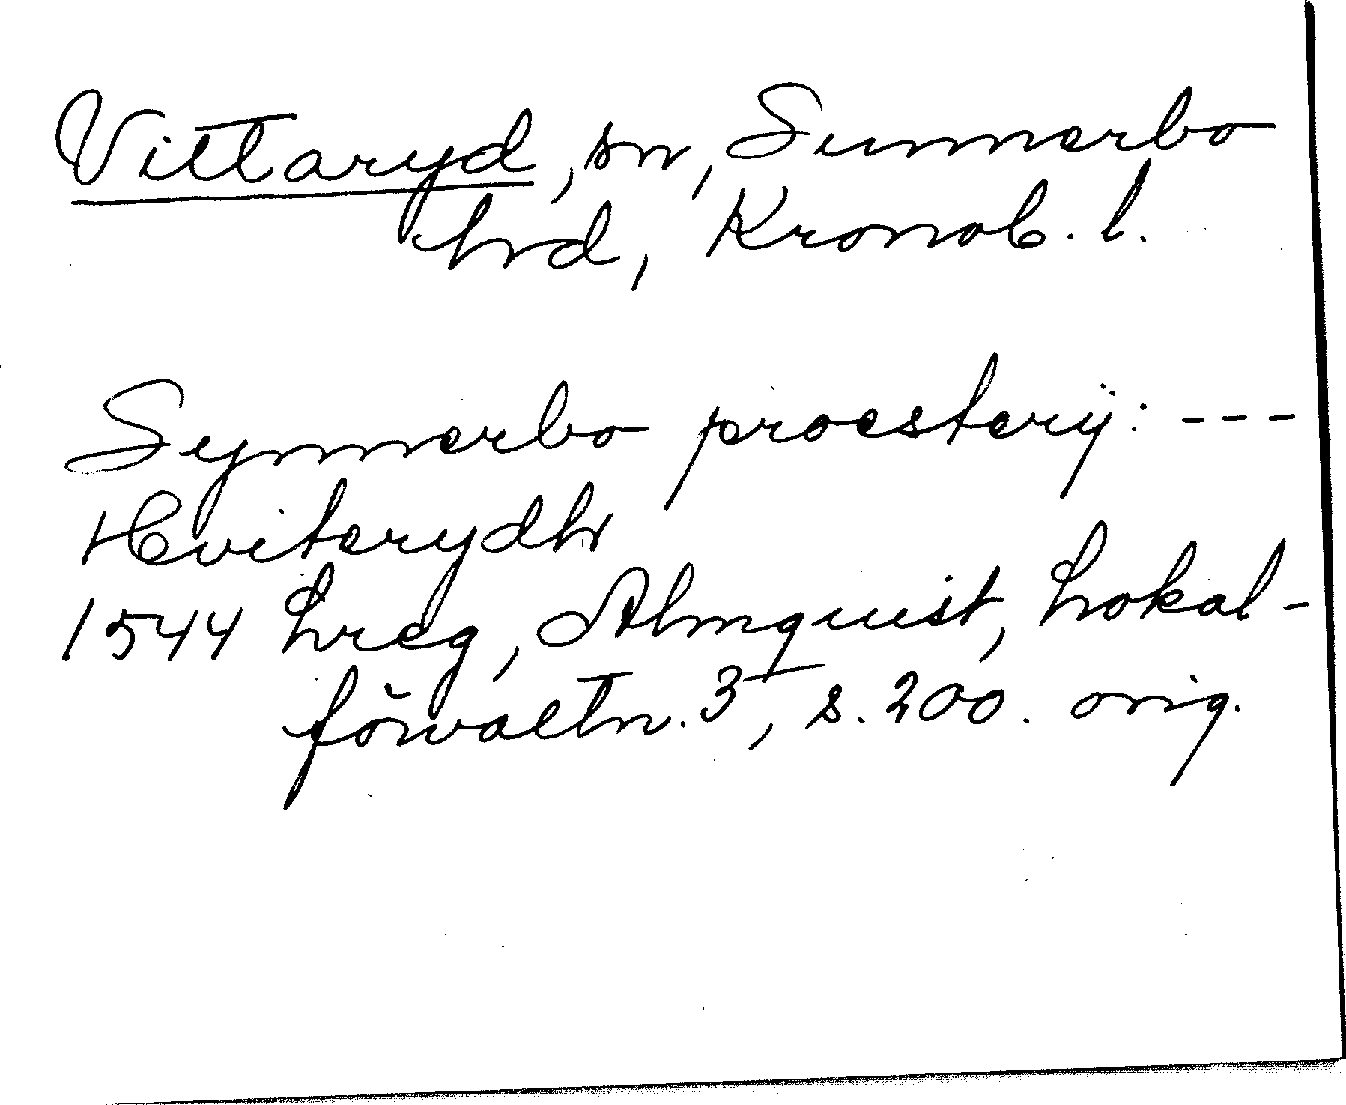 Vittaryd, sn, Sunnerbo
hrd, Kronob. l.
Synnerbo proesterij: ---
Hviterydh
1544 hreg, Almquist, Lokal-
förvaltn. 3, s. 200. orig.